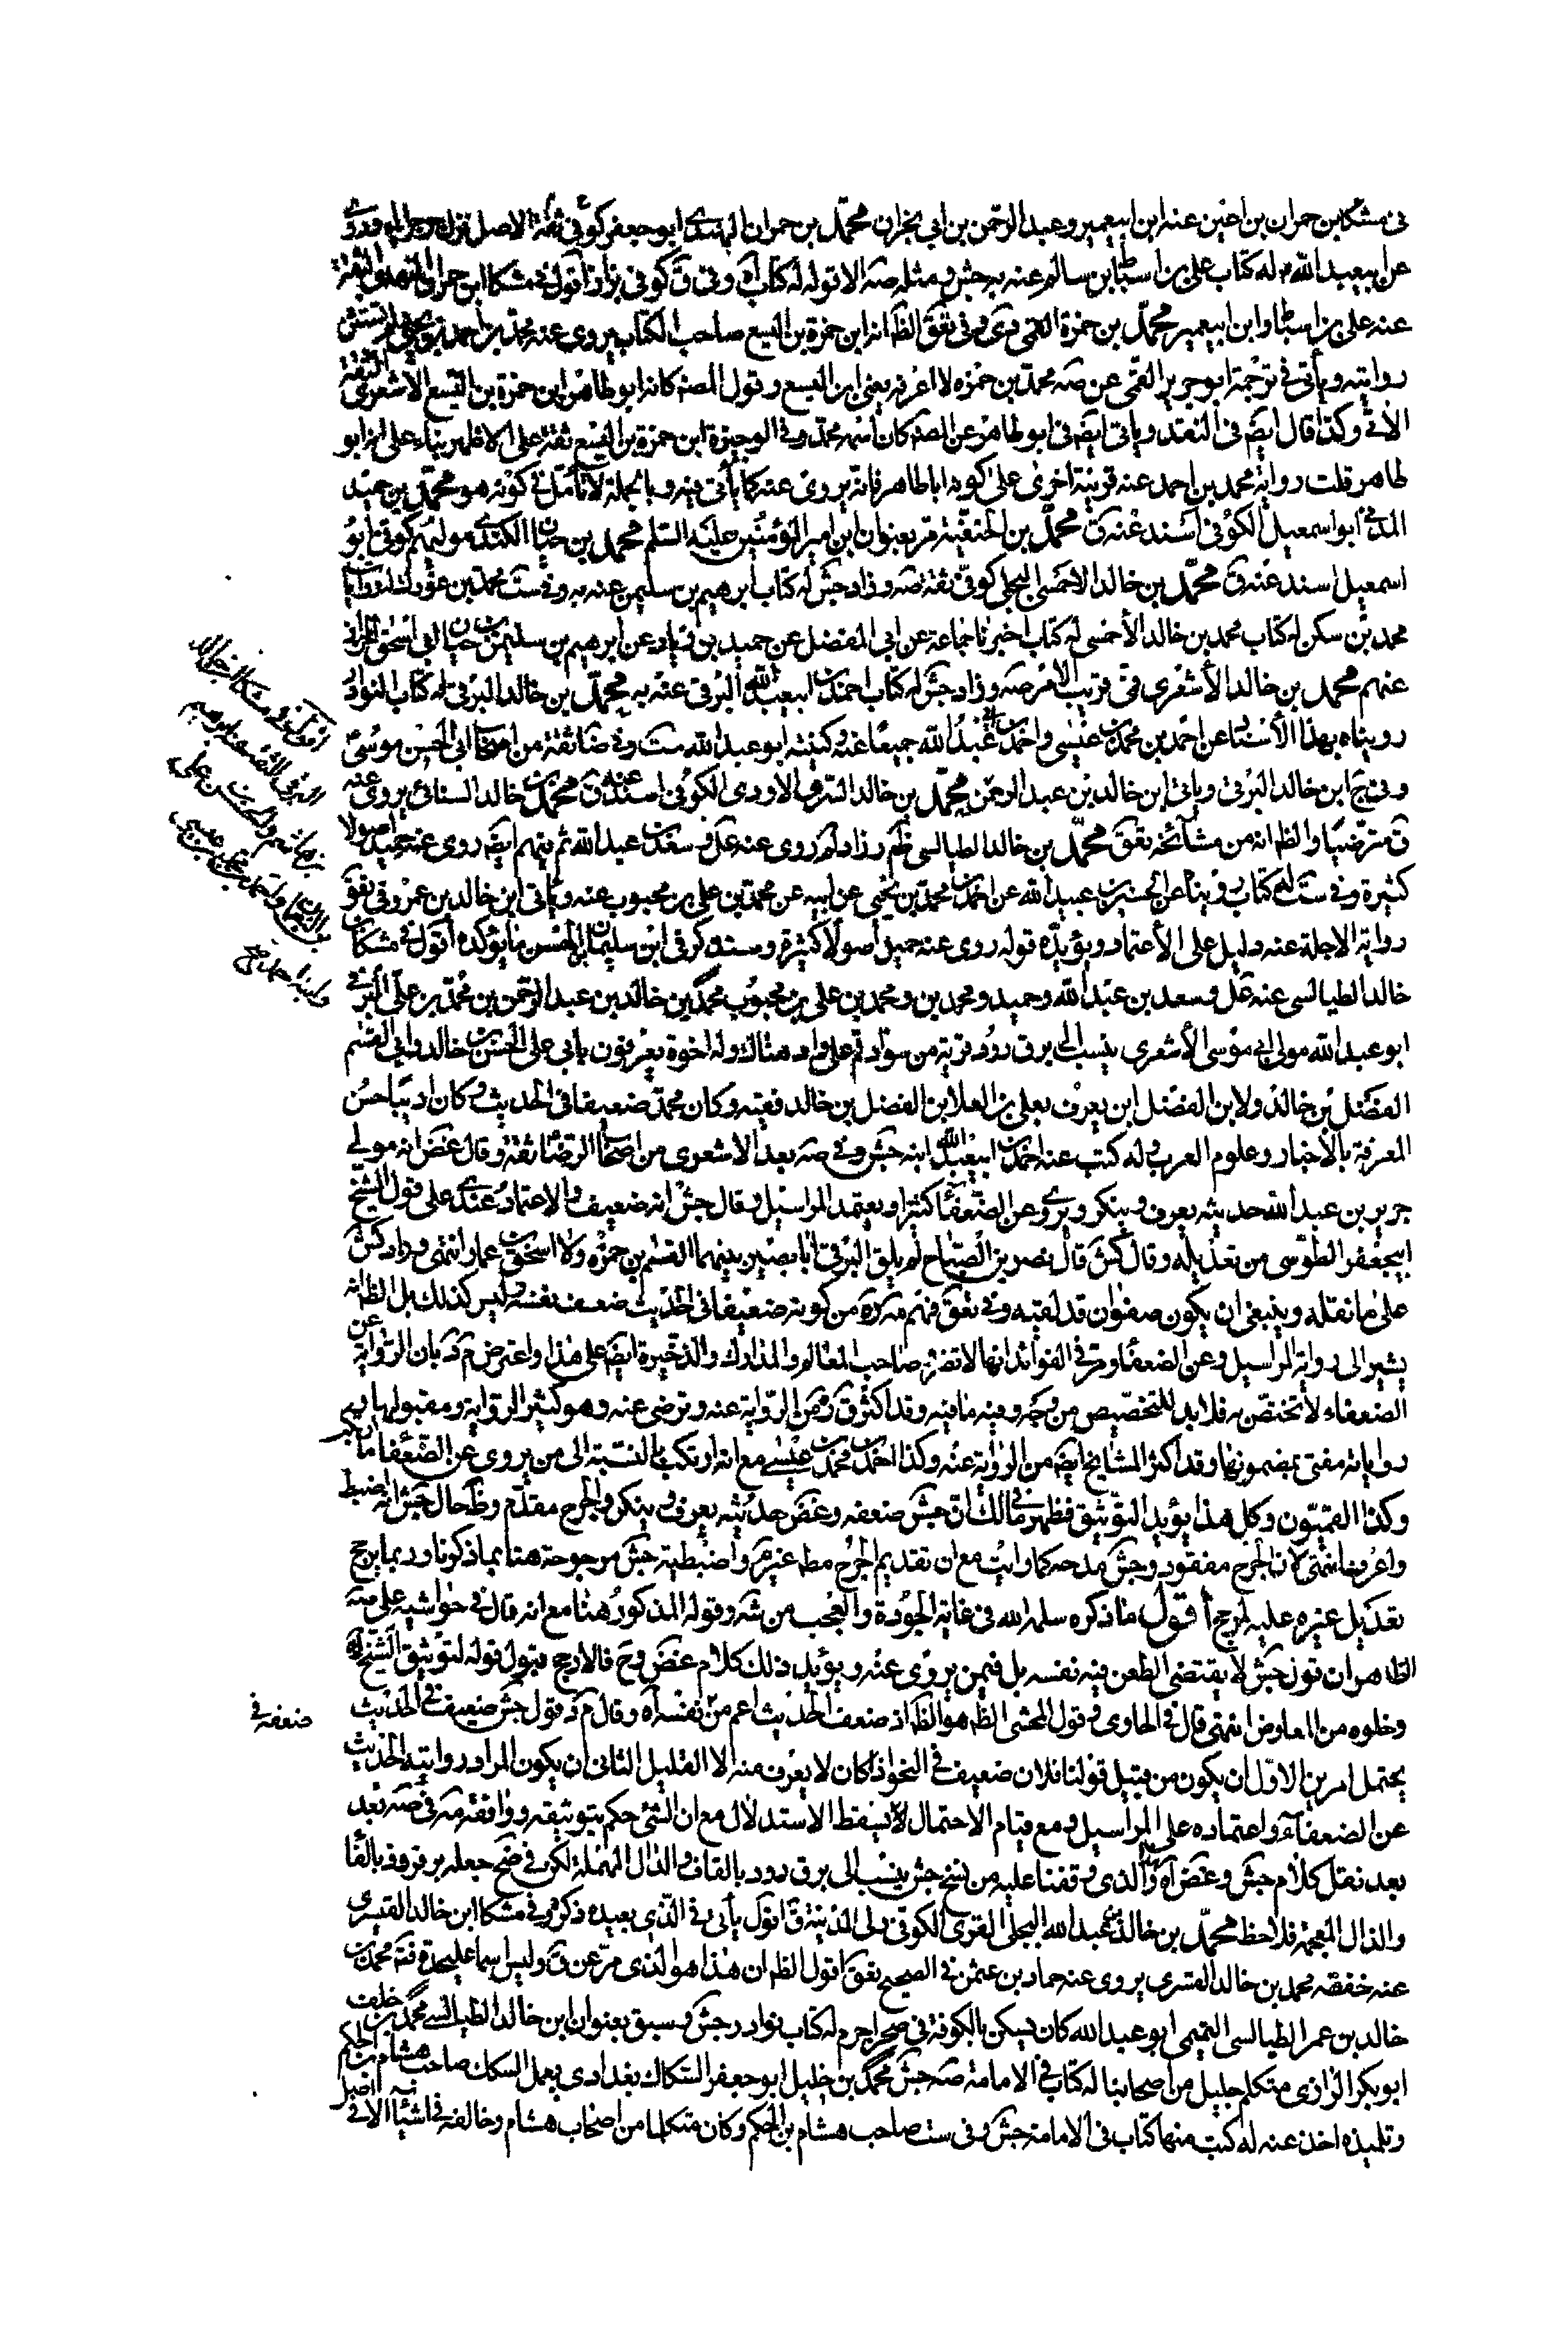 في مشكا بن حمران بن اعين عنه ابن ابيعمير وعبد الرحمن بن ابي نجران محمد بن حمران النهدي ابو جعفر كوفي ثقة الاصل نزل جرجرايا وروى
عن ابيعبد الله له كتاب علي بن اسباط بن سالم عنه به جش ومثله صه الا قوله له كتاب اه وفي ق كوفي بزاز اقول في مشكا ابن حمران النهدي الثقة
عنه علي بن اسباط وابن ابيعمير محمد بن حمزة القمي دي وفي تعق الظ انه ابن حمزة بن اليسع صاحب الكتاب يروي عنه محمد بن احمد بن يحيى ولم تستثن
روايته ويأتي في ترجمة ابو جرير القمي عن صه محمد بن حمزه لا اعرفه يعني ابن اليسع وقول المصه كانه ابو طاهر ابن حمزة بن اليسع الاشعري الثقة
الآتي وكذا قال ايضا في النقد ويأتي ايضا في ابو طاهر عن المصه كان اسمه محمد وفي الوجيزة ابن حمزة بن اليسع ثقة على الاظهر بناء على انه ابو
طاهر قلت رواية محمد بن احمد عنه قرينة اخرى على كونه ابا طاهر فانه يروي عنه كما يأتي فيه وبالجملة لا تأمل في كونه هو محمد بن حميد
المدني ابو اسمعيل الكوفي اسند عنه ق محمد بن الحنفية مر بعنوان ابن امير المؤمنين عليه السلم محمد بن حيان الكندي موليهم كوفي ابو
اسمعيل اسند عنه ق محمد بن خالد الاحمسي البجلي كوفي ثقة صه وزاد جش له كتاب ابرهيم بن سليمن عنه به وفي ست محمد بن له روايات
محمد بن سكن له كتاب محمد بن خالد الأحمسي له كتاب اخبرنا جماعة عن ابي المفضل عن حميد بن زياد عن ابرهيم بن سليمن بن حيان ابي اسحق الخزاز
عنهم محمد بن خالد الأشعري قمي قريب الامر صه وزاد جش له كتاب احمد بن ابيعبد الله البرقي عنه به محمد بن خالد البرقي له كتاب النوادر
رويناه بهذا الأسناد عن احمد بن محمد بن عيسى واحمد بن ابي عبد الله جميعا عنه وكنيته ابو عبد الله ست وفي ضا ثقة من اصحاب ابي الحسن موسى
وفي ج ابن خالد البرقي ويأتي ابن خالد بن عبد الرحمن محمد بن خالد السري الاودي الكوفي اسند عنه ق محمد بن خالد السناني يروي عنه
ق مترضيا والظ انه من مشائخه تعق محمد بن خالد الطيالسي ظم وزاد لم روى عنه عل وسعد بن عبد الله ثم فيهم ايضا روى عنه حميد اصولا
كثيرة وفي ست له كتاب رويناه عن الحسين بن عبيد الله عن احمد بن محمد بن يحيى عن ابيه عن محمد بن علي بن محبوب عنه ويأتي ابن خالد بن عمر وفي تعق
رواية الاجلة عنه دليل على الأعتماد ويؤيده قوله روى عنه حميد أصولا كثيرة وسنذكر في ابن سليمان ابي الحسن ما يؤكده اقول في مشكا بن
خالد الطيالسي عنه عل وسعد بن عبد الله وحميد ومحمد بن ومحمد بن علي بن محبوب محمد بن خالد بن عبد الرحمن بن محمد بن علي البرقي
ابو عبد الله مولى ابي موسى الأشعري ينسب الى برق رود قرية من سواد قم على واد هناك وله اخوة يعرفون بأبي علي الحسن بن خالد وابي القسم
الفضل بن خالد ولابن الفضل ابن يعرف بعلي بن العلا بن الفضل بن خالد فقيه وكان محمد ضعيفا في الحديث وكان اديبا حسن
المعرفة بالأخبار وعلوم العرب وله كتب عنه احمد بن ابيعبد الله ابنه جش وفي صه بعد الاشعري من اصحاب الرضا ثقة وقال غض انه مولى
جرير بن عبد الله حديثه يعرف وينكر ويروي عن الضعفاء كثيرا ويعتمد المراسيل وقال جش انه ضعيف والاعتماد عندي على قول الشيخ
ابيجعفر الطوسي من تعديله وقال كش قال نصر بن الصباح لم يلق البرقي ابا بصير بينهما القسم بن حمزه ولا اسحق بن عمار انتهى وزاد كش
على ما نقله وينبغي ان يكون صفوان قد لقيه وفي تعق فهم من كونه ضعيفا في الحديث ضعف نفسه وليس كذلك بل الظ انه
يشير الى رواية المراسيل وعن الضعفاء ومر في الفوائد انها لا تضر صاحب المعالم والمدارك والذخيرة ايضا على هذا واعترض م د بان الرواية عن
الضعفاء لا تختص به فلابد للتخصيص من وجه وفيه ما فيه وقد اكثر ق من الرواية عنه وترضى عنه وهو كثير الرواية ومقبولها
رواياته مفتى بمضمونها وقد اكثر المشايخ ايضا من الرواية عنه وكذا احمد بن محمد بن عيسى مع انه ارتكب بالنسبة الى من يروي عن الضعفاء ما
وكذا القميون وكل هذا يؤيد التوثيق فظهر ما في ذلك ان جش ضعفه وغض حديثه يعرف وينكر والجرح مقدم وظ حال جش انه اضبط
واعرف انتهى لان الجرح مفقود وجش مدحه كما رايت مع ان تقديم الجرح مط غير مر واضبطية جش مرجوحة هنا بما ذكرنا وربما يرجح
تعديل غيره عليه لمرجح أقول ما ذكره سلمه الله في غاية الجودة والعجب من شه وقوله المذكور هنا مع انه قال في حواشيه على صه
الظاهر ان قول جش لا يقتضي الطعن فيه نفسه بل فيمن يروي عنه ويؤيد ذلك كلام غض وح فالارجح قبول قوله لتوثيق الشيخ له
وخلوه من المعارض انتهى قال في الحاوي وقول المحشي الظ هو الظ اذ ضعف الحديث اعم من نفسه اه وقال م د قول جش ضعيف في الحديث
يحتمل امرين الاول ان يكون من قبيل قولنا فلان ضعيف في النحو اذا كان لا يعرف منه الا القليل الثاني ان يكون المراد روايته الحديث
عن الضعفاء واعتماده على المراسيل ومع قيام الاحتمال لا يسقط الاستدلال مع ان الشي حكم بتوثيقه ووافقه مه في صه بعد
بعد نقل كلام جش وغض اه والذي وقفنا عليه من نسخ جش ينسب الى برق رود بالقاف والدال المهملة لكن في ضح جعله برفروذ بالفاء
والذال المعجمة فلاحظ محمد بن خالد بن عبد الله البجلي القسري الكوفي ولي المدينة ق اقول يأتي في الذي بعيده ذكره وفي مشكا ابن خالد القسري
عنه خفقه محمد بن خالد القسري يروي عنه حماد بن عثمن في الصحيح تعق اقول الظ ان هذا هو الذي مر عن ق وليس اسما عليحدة فته محمد بن
خالد بن عمر الطيالسي التميمي ابو عبد الله كان يسكن بالكوفة في صحراء جرم له كتاب نوادر جش وسبق بعنوان ابن خالد الطيالسي محمد بن خلف
ابو بكر الرازي متكلم جليل من اصحابنا له كتاب في الامامة صه جش محمد بن خليل ابو جعفر السكاك بغدادي يعمل السكك صاحب هشام بن الحكم
وتلميذه اخذ عنه له كتب منها كتاب في الامامة جش وفي ست صاحب هشام بن الحكم وكان متكلما من اصحاب هشام وخالفه في اشياء الا في
ضعفه في